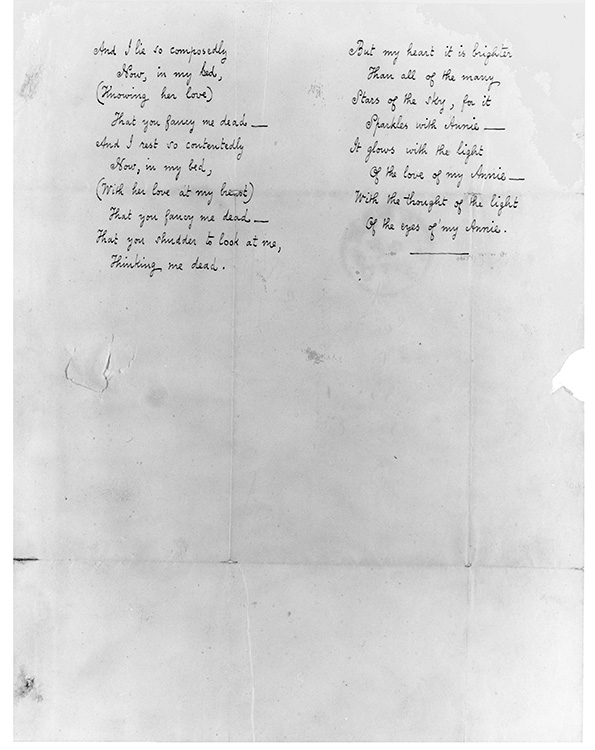 And I lie so composedly
Now, in my bed,
(Knowing her love)
That you fancy me dead —
And I rest so contentedly
Now, in my bed,
(With her love at my breast)
That you fancy me dead —
That you shudder to look at me,
Thinking me dead.
But my heart it is brighter
Than all of the many
Stars of the sky, for it
Sparkles with Annie —
It glows with the light
Of the love of my Annie —
With the thought of the light
Of the eyes of my Annie.